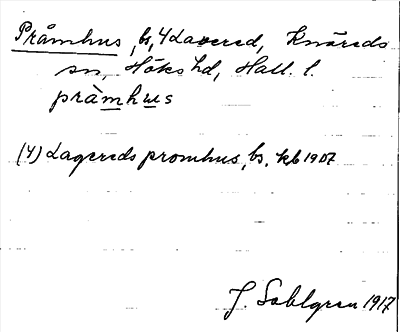 Pråmhus, bs, 4 Lagered, Knäreds
sn, Höks hd, Hall. l.
pràmhus
(4) Lagereds promhus, bs. kb 1907
J. Sahlgren 1917